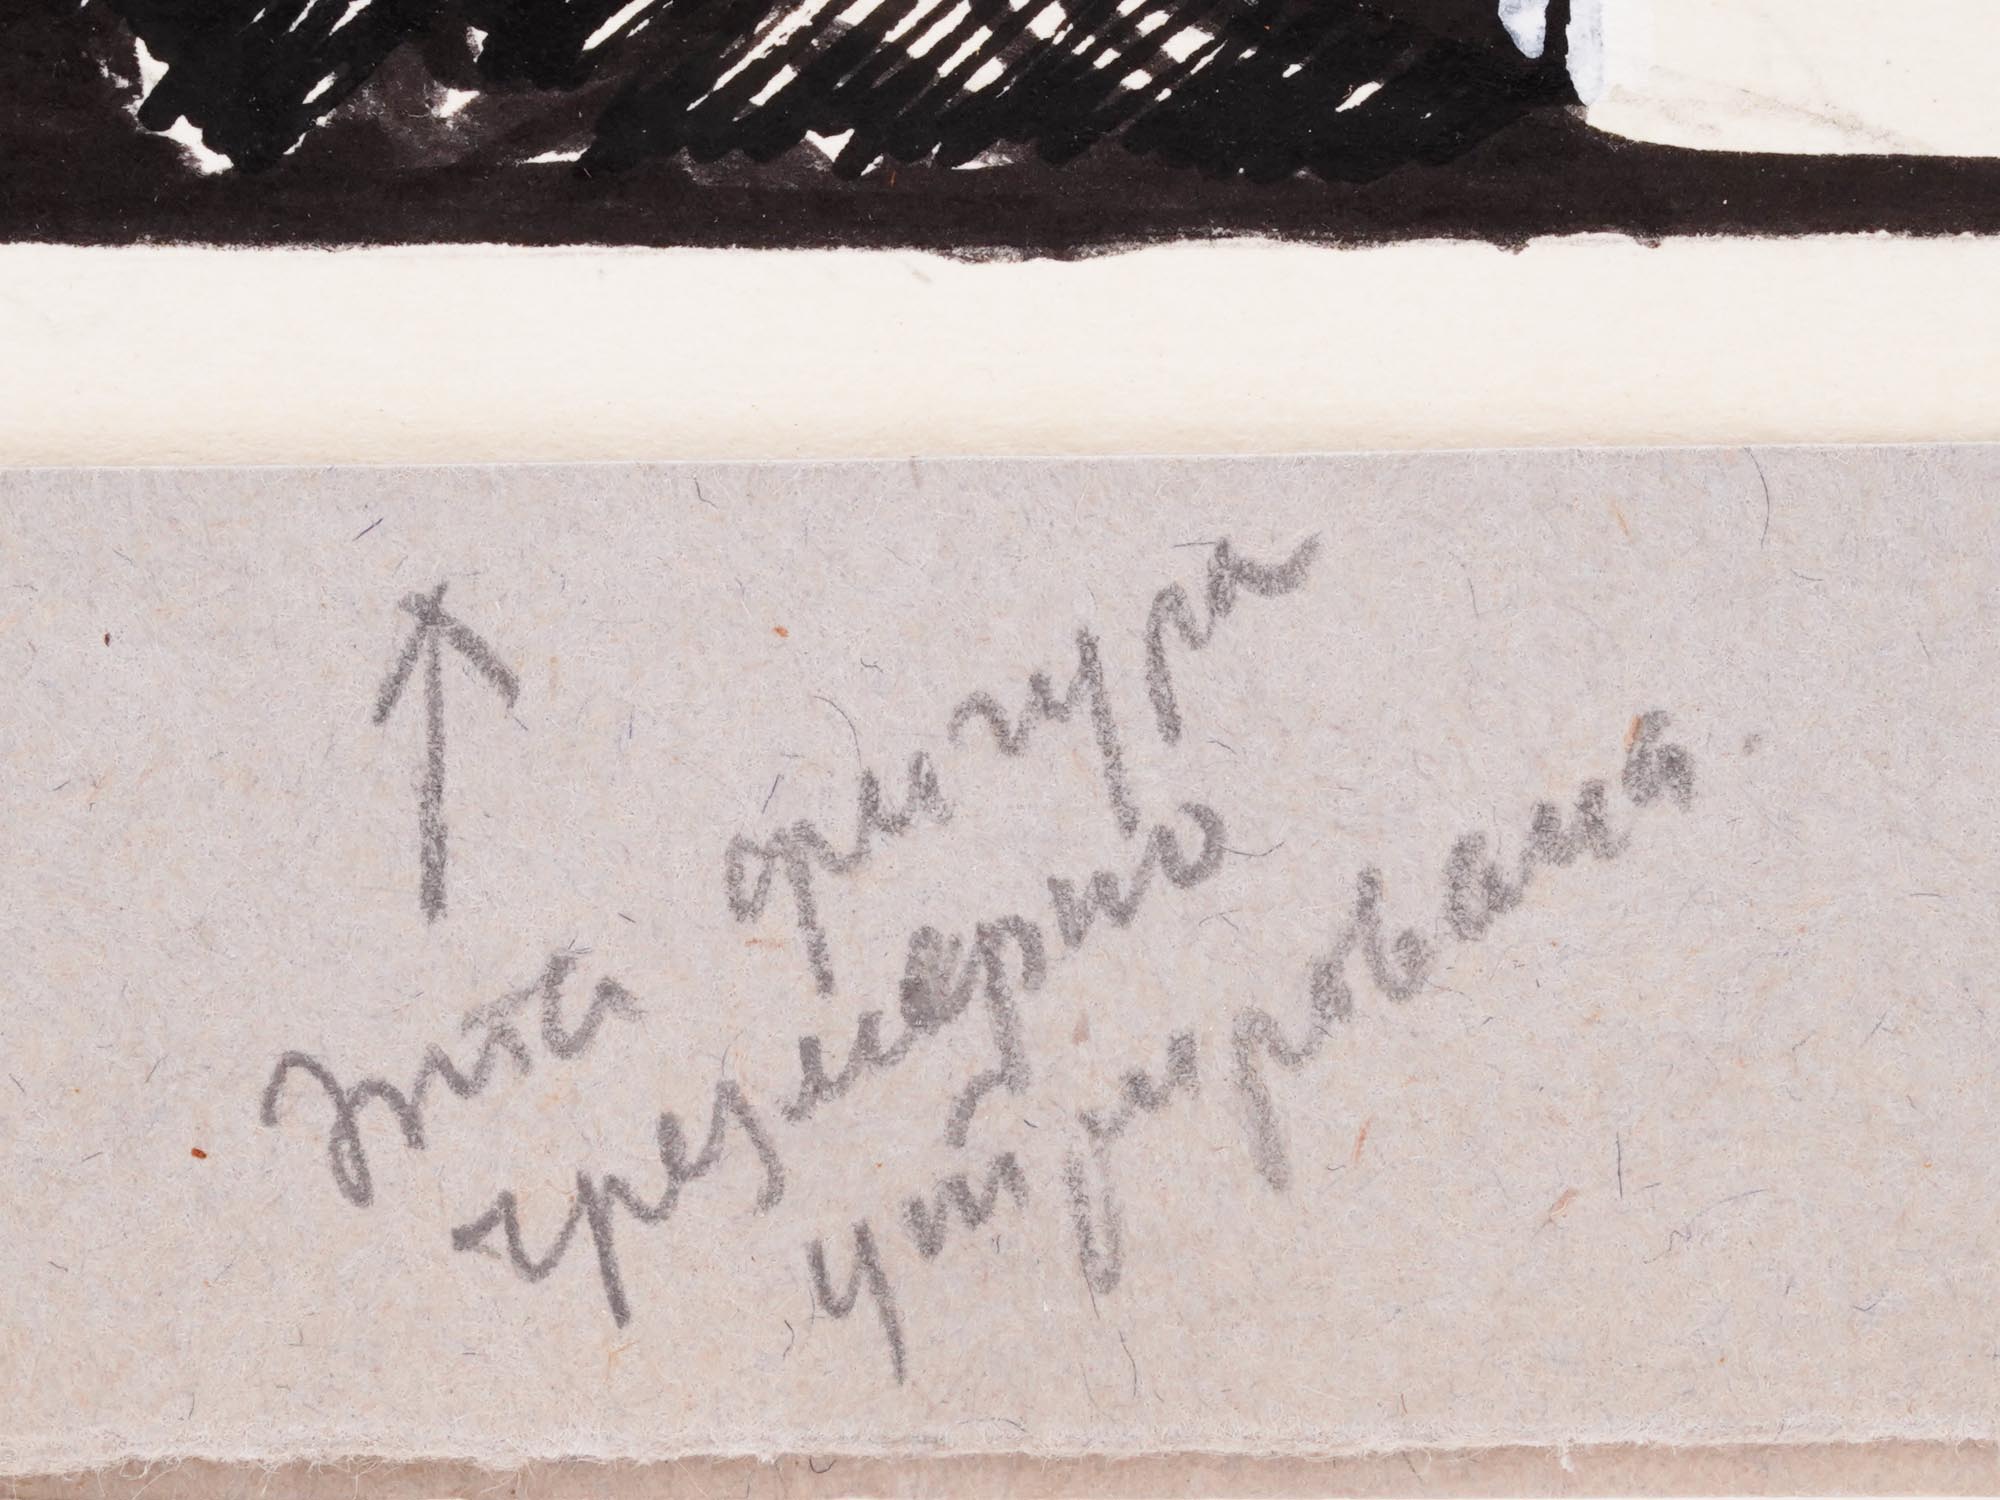 эта фигура
чрезмерно
утрирована.